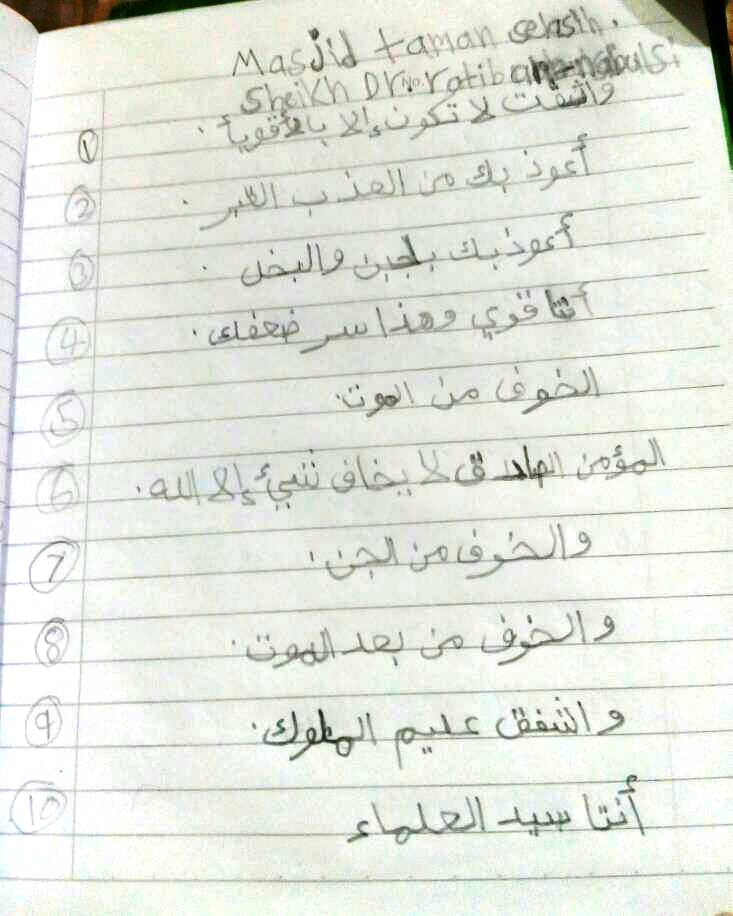 Masjid taman selasih.
Sheikh Dr ratib an-nabulsi
① واشفت لا تكون إلا بالأقويأ.
② أعوذ بك من العذب القبر.
③ أعوذبك بلجبن والبخل.
④ أنتا قوي وهذا سر ضعفك.
⑤ الخوف من الموت.
⑥ المؤمن الصادق لا يخاف شيئ إلا الله.
⑦ والخوف من الجن.
⑧ والخوف من بعد الموت.
⑨ واشفق عليم الملوك.
⑩ أنتا سيد العلماء